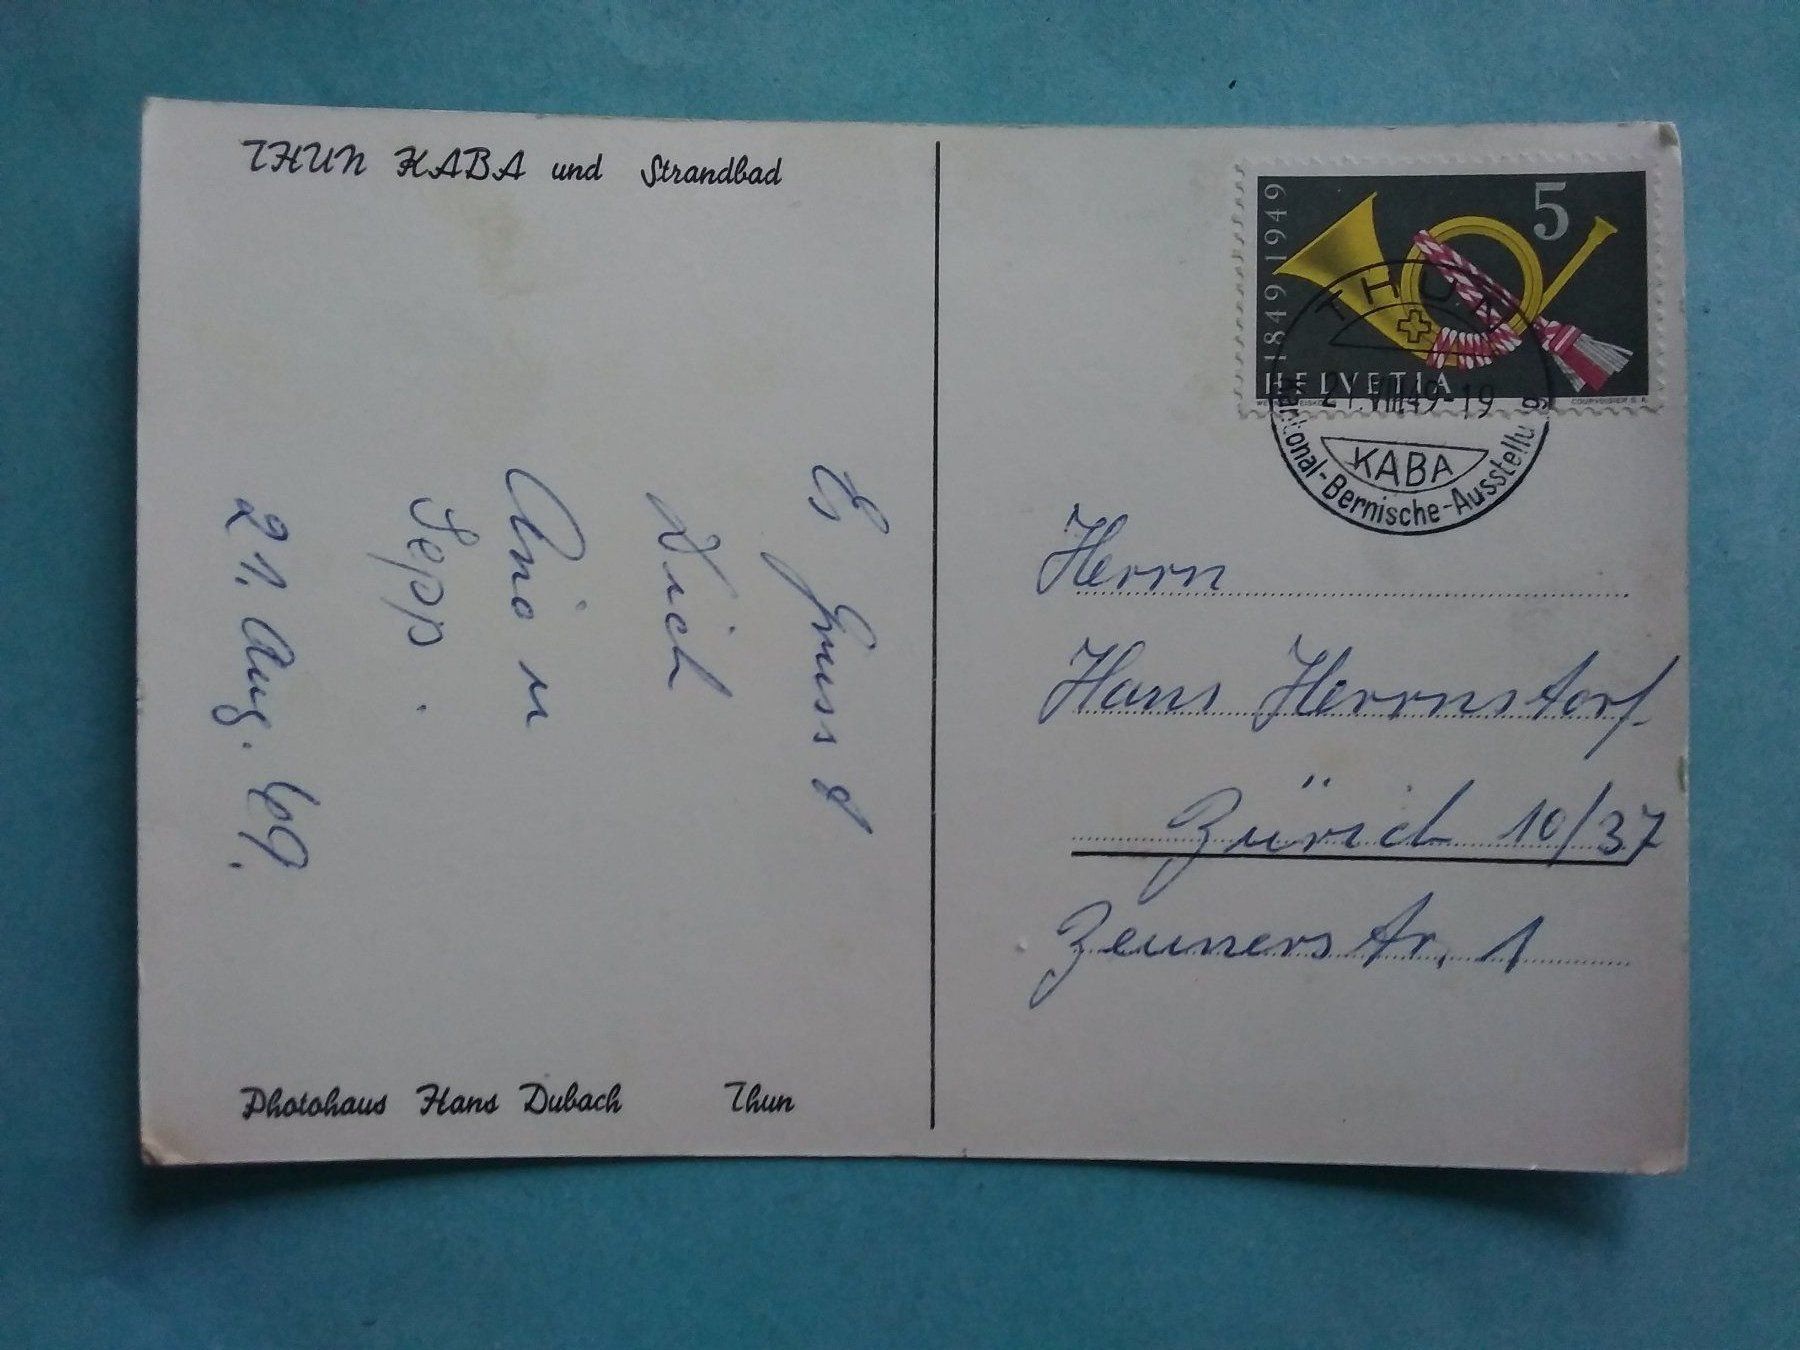 THUN KABA und Strandbad
Es Grüssd
Dich
Sepp.
21. Aug. 49.
Photohaus Hans Dubach Thun
1849 1949
5
HELVETIA
COURVOISIER S.A.
THUN
21.VIII49-19
KABA
Kantonal-Bernische-Ausstellung
Herrn
Hans Herrnstorf.
Zürich 10/37
Zeunerstr. 1